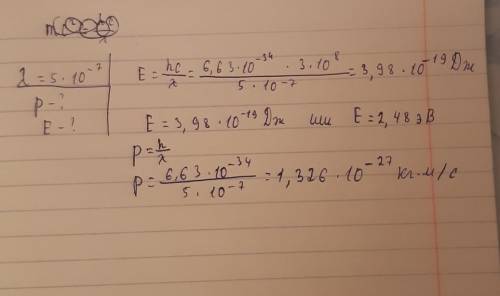 λ = 5 · 10⁻⁷
p - ?
E - ?
E = hc/λ = 6,63 · 10⁻³⁴ · 3 · 10⁸ / 5 · 10⁻⁷ = 3,98 · 10⁻¹⁹ Дж
E = 3,98 · 10⁻¹⁹ Дж или E = 2,48 эВ
p = h/λ
p = 6,63 · 10⁻³⁴ / 5 · 10⁻⁷ = 1,326 · 10⁻²⁷ кг·м/с